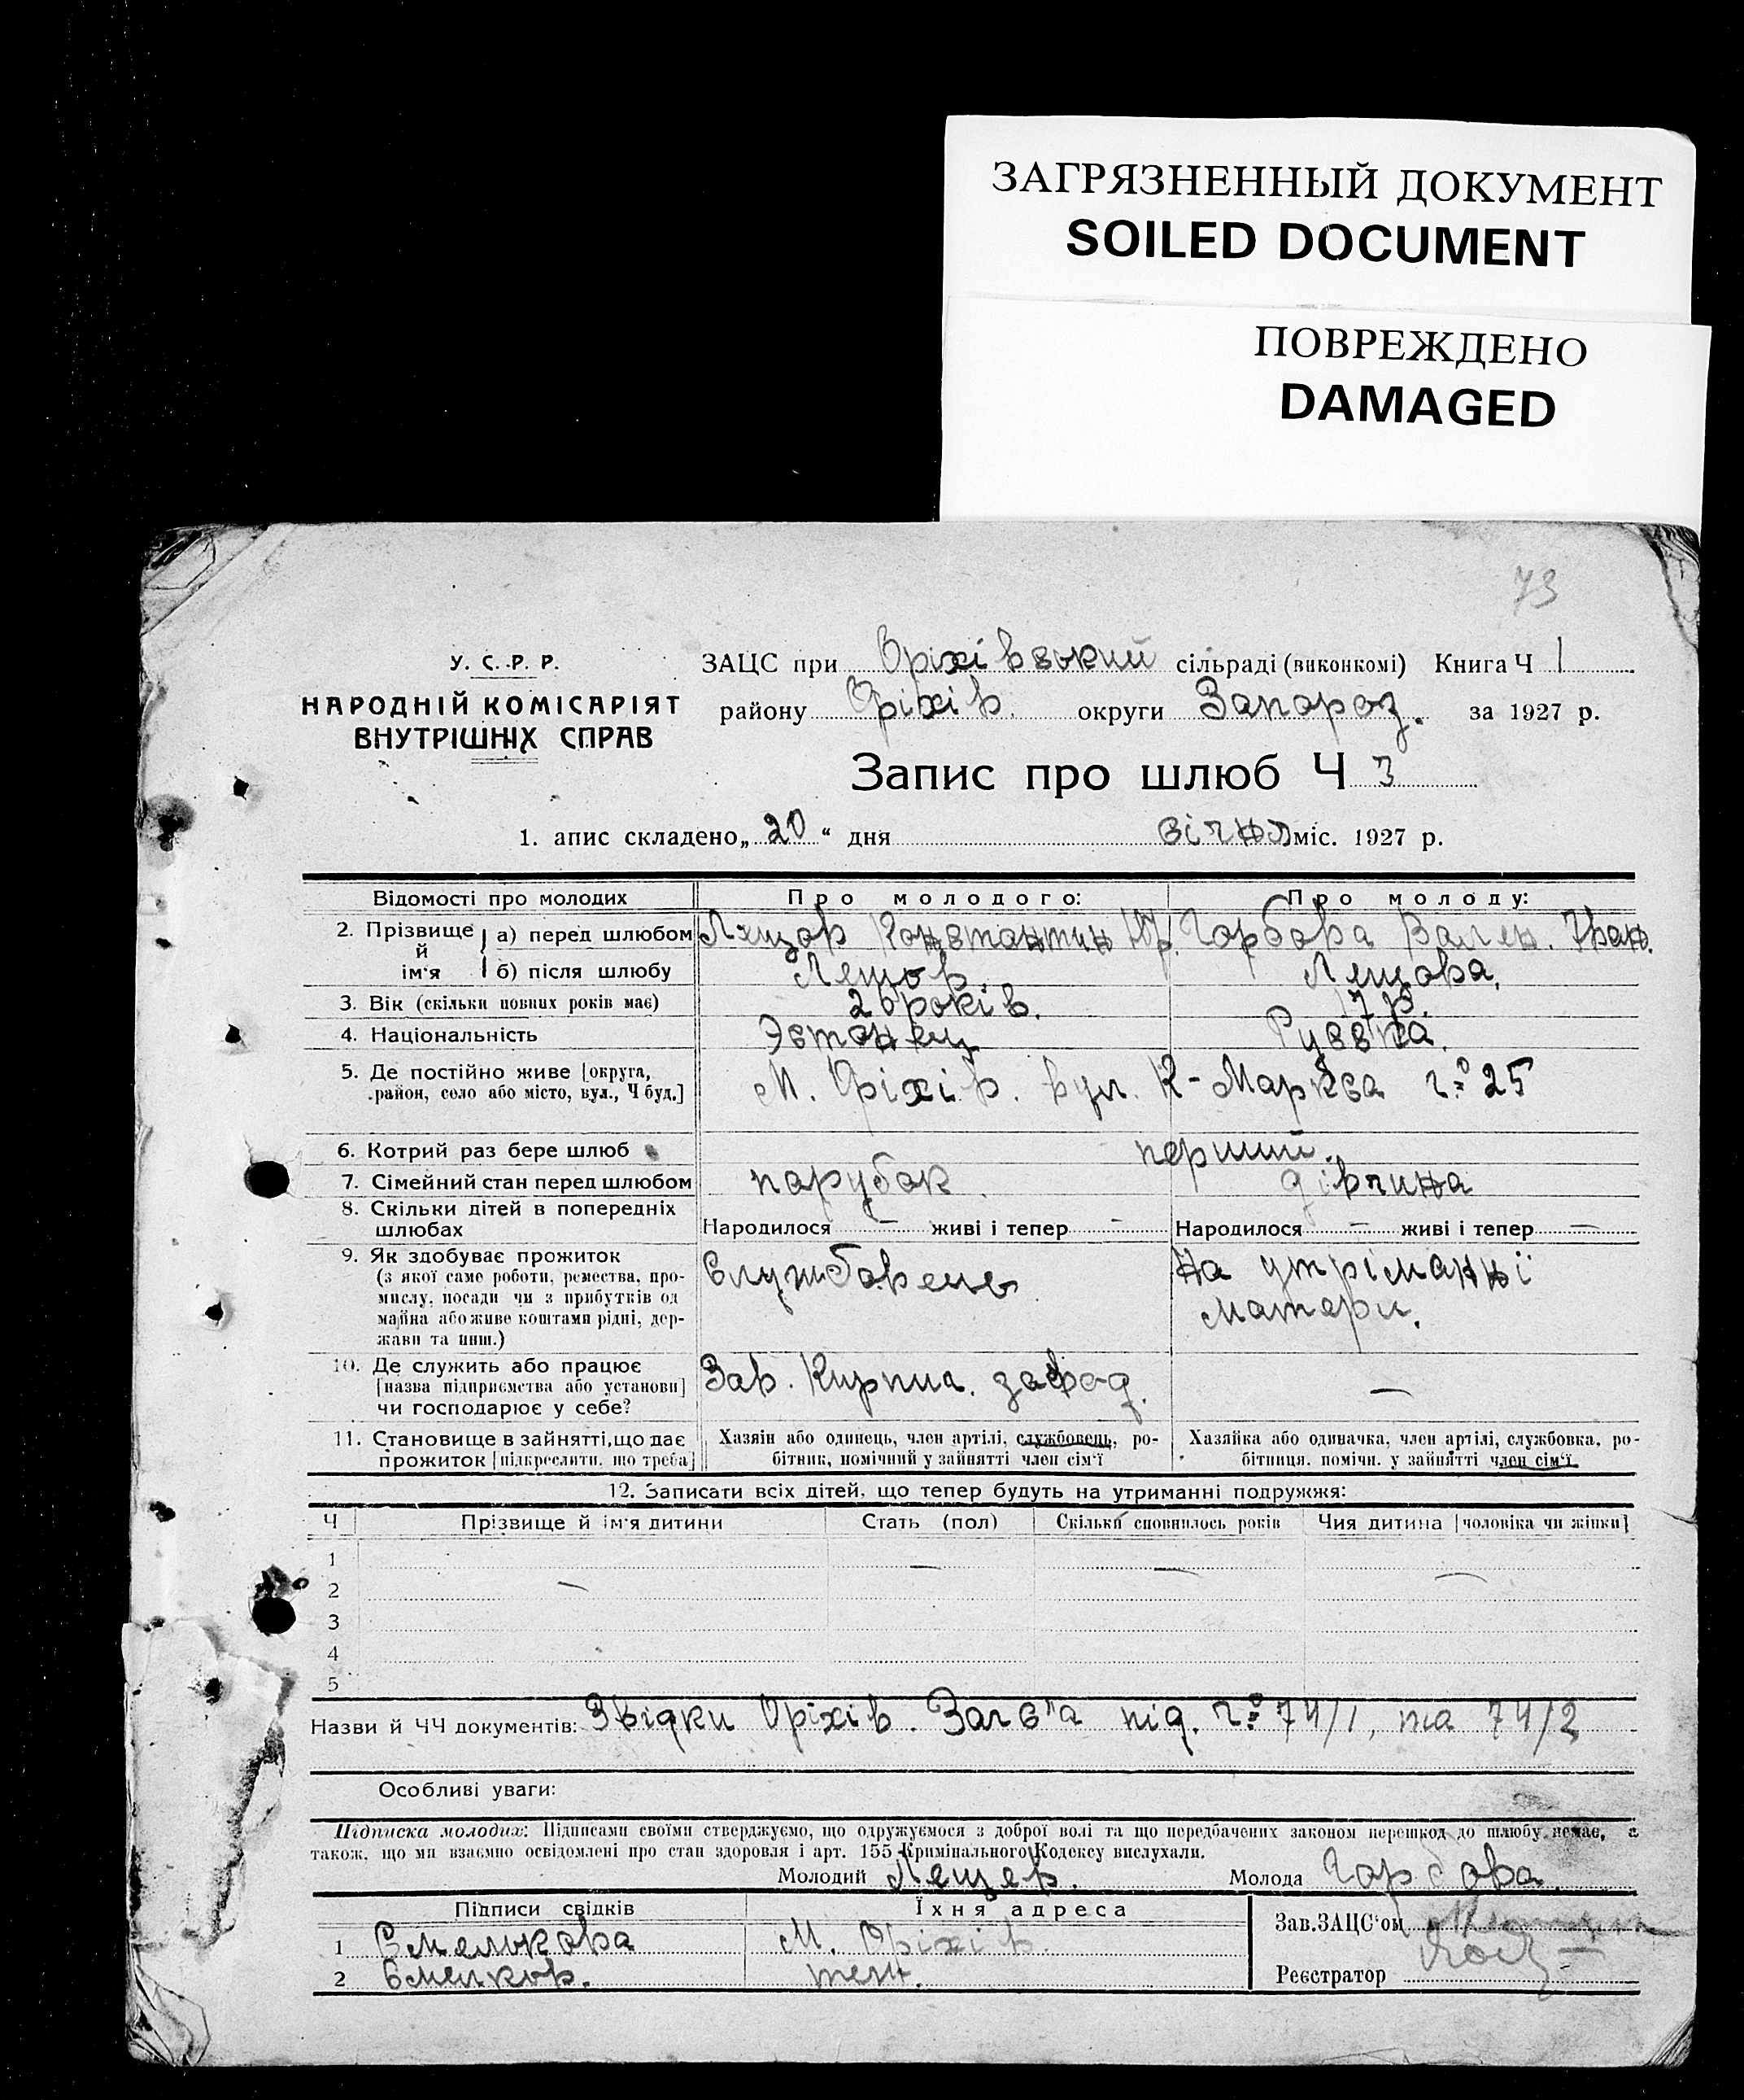 ЗАГРЯЗНЕННЫЙ ДОКУМЕНТ
SOILED DOCUMENT
ПОВРЕЖДЕНО
DAMAGED
73
У. С. Р. Р.
НАРОДНІЙ КОМІСАРІЯТ
ВНУТРІШНІХ СПРАВ
ЗАЦС при Оріхівський сільраді (виконкомі) Книга Ч 1
району Оріхів. округи Запороз. за 1927 р.
Запис про шлюб Ч 3
1. апис складено „20“ дня січня міс. 1927 р.
Відомості про молодих Про молодого: Про молоду:
2. Прізвище й ім'я а) перед шлюбом Лещов Константин Юр. Горбова Вален. Іван.
б) після шлюбу Лещов. Лещова.
3. Вік (скільки повних років має) 26 років. 17 р.
4. Національність Эстонец Руська.
5. Де постійно живе [округа, район, село або місто, вул., Ч буд.] М. Оріхів. вул. К-Маркса ч.° 25
6. Котрий раз бере шлюб перший.
7. Сімейний стан перед шлюбом парубок. дівчина
8. Скільки дітей в попередніх шлюбах Народилося — живі і тепер — Народилося — живі і тепер —
9. Як здобуває прожиток
(з якої саме роботи, ремества, про-
мислу, посади чи з прибутків од
майна або живе коштами рідні, дер-
жави та инш.)
Службовець
На утріманні
матери.
10. Де служить або працює
[назва підприємства або установи]
чи господарює у себе?
Зав. Кирпич. завод. —
11. Становище в зайнятті, що дає
прожиток [підкреслити, що треба]
Хазяїн або одинець, член артілі, службовець, ро-
бітник, помічний у зайнятті член сім'ї
Хазяйка або одиначка, член артілі, службовка, ро-
бітниця, помічн. у зайнятті член сім'ї
12. Записати всіх дітей, що тепер будуть на утриманні подружжя:
Ч Прізвище й ім'я дитини Стать (пол) Скільки сповнилось років Чия дитина [чоловіка чи жінки]
1 — —
2 — —
3
4
5
Назви й ЧЧ документів: Звідки Оріхів. під. ч.° 74/1, та 74/2
Особливі уваги:
Підписка молодих: Підписами своїми стверджуємо, що одружуємося з доброї волі та що передбачених законом перешкод до шлюбу немає, а
також, що ми взаємно освідомлені про стан здоровля і арт. 155 Кримінального Кодексу вислухали.
Молодий Лещев. Молода Горбова.
Підписи свідків Їхня адреса
1 Смелькова М. Оріхів.
2 Смелков. теж.
Зав. ЗАЦС'ом
Реєстратор